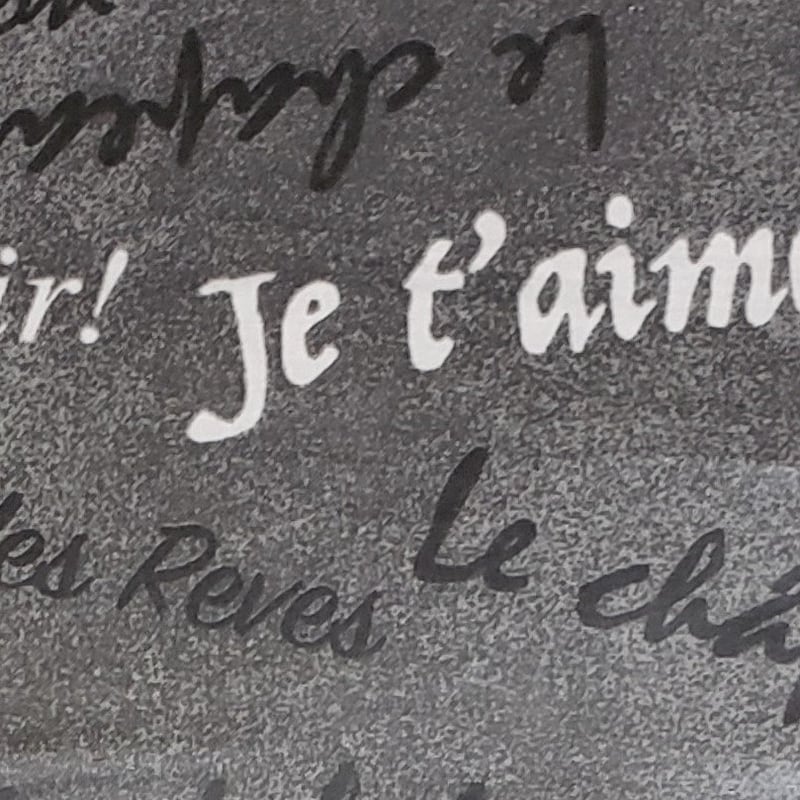 Le chapeau
ir! Je t'aime
des Reves Le cha